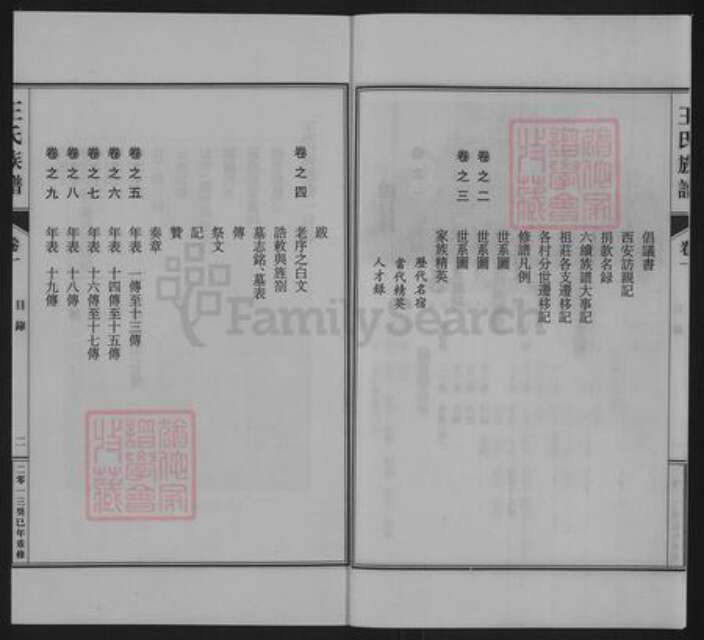 王氏族譜
卷一
倡議書
西安訪親記
捐款名錄
六續族譜大事記
祖莊各支遷移記
各村分世遷移記
修譜凡例
世系圖
卷之二
世系圖
卷之三
世系圖
家族精英
歷代名宿
當代精英
人才錄
跋
卷之四
老序之白文
誥敕與旌別
墓志銘、墓表
傳
祭文
記
贊
奏章
卷之五
年表 一傳至十三傳
卷之六
年表 十四傳至十五傳
卷之七
年表 十六傳至十七傳
卷之八
年表 十八傳
卷之九
年表 十九傳
王氏族譜
卷一
目錄
二
二零一三癸巳年重修
FamilySearch